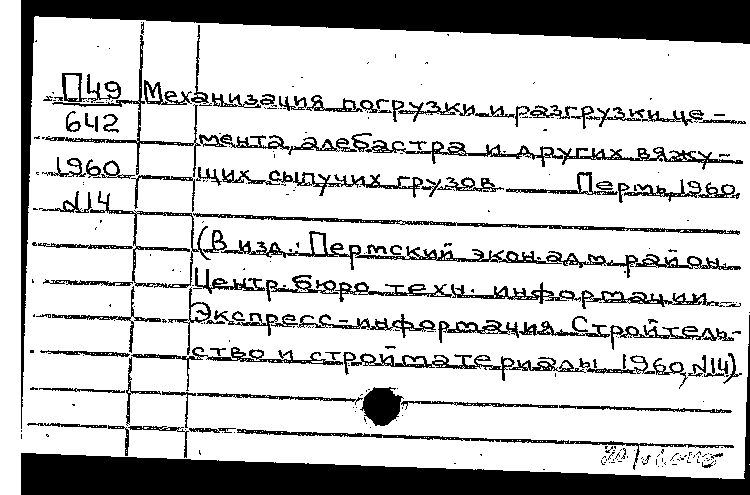 П49 Механизация погрузки и разгрузки це-
642 мента, алебастра и других вяжу-
1960 щих сыпучих грузов Пермь, 1960
№14
(В изд.: Пермский экон. адм. район.
Центр. бюро техн. информации.
Экспресс-информация. Строитель-
ство и стройматериалы 1960, №14)